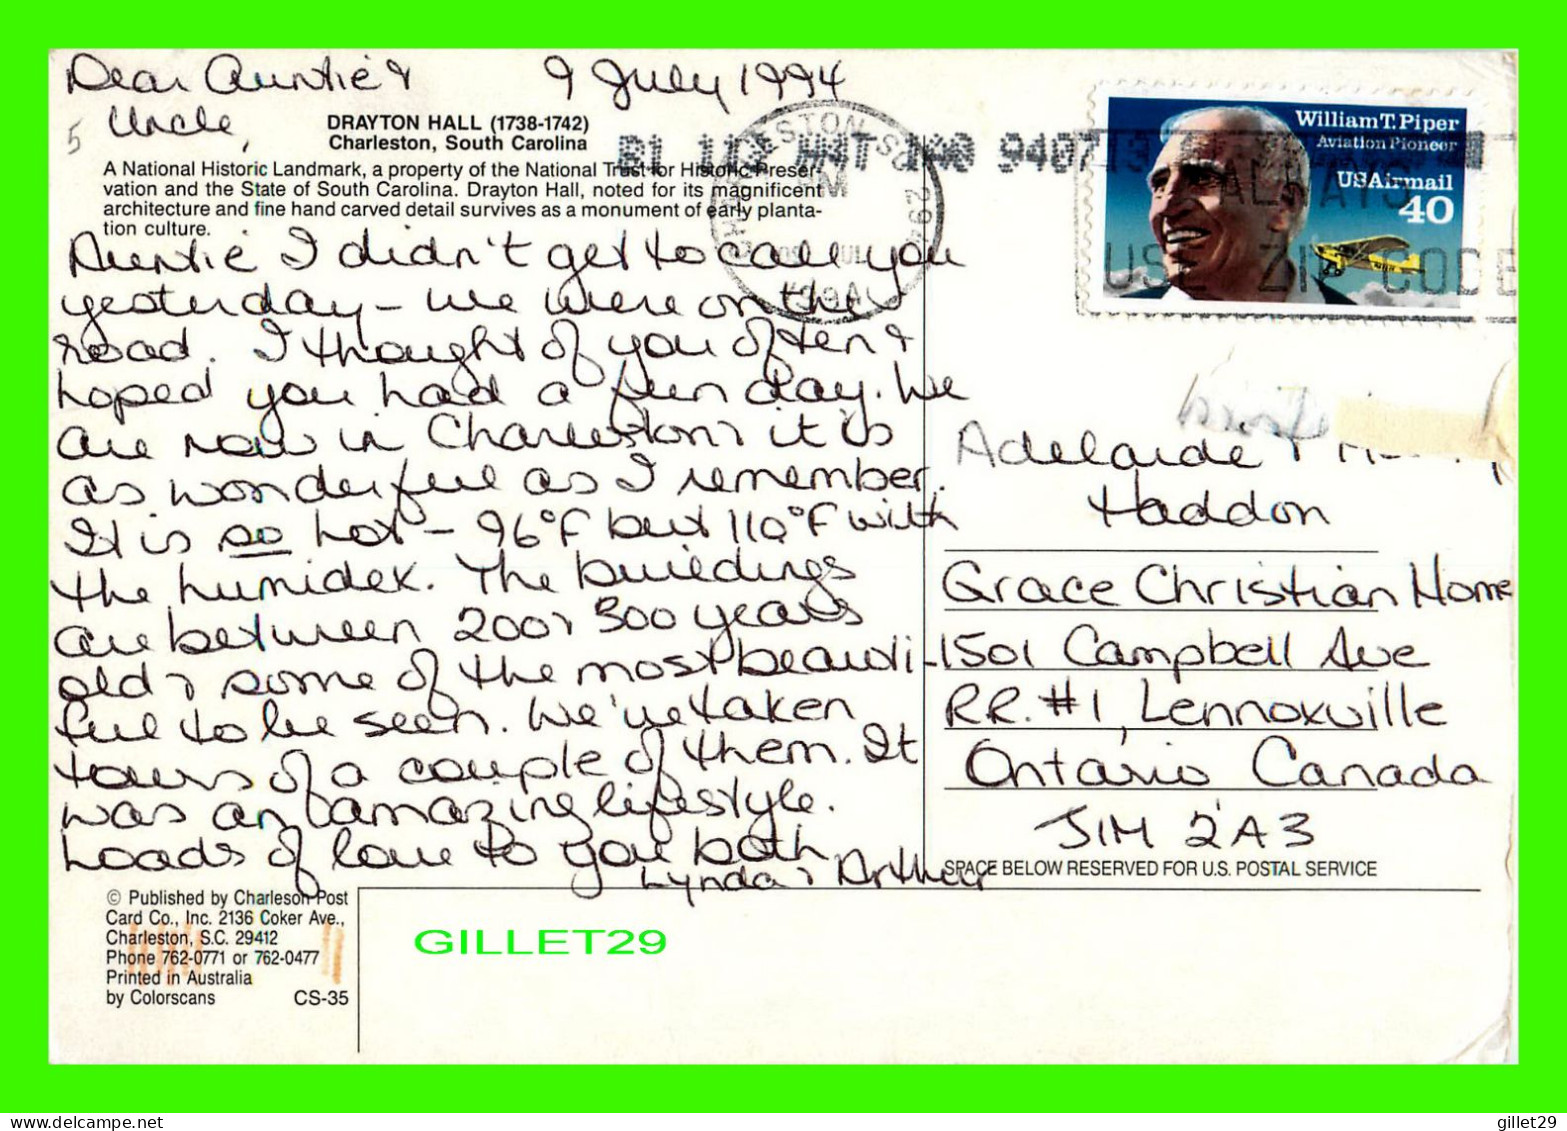 Dear Auntie &
9 July 1994
Uncle,
5
DRAYTON HALL (1738-1742)
Charleston, South Carolina
A National Historic Landmark, a property of the National Trust for Historic Preser-
vation and the State of South Carolina. Drayton Hall, noted for its magnificent
architecture and fine hand carved detail survives as a monument of early planta-
tion culture.
Auntie I didn't get to call you
yesterday - we were on the
road. I thought of you often &
hoped you had a fun day. We
are now in Charleston & it is
as wonderful as I remember.
It is so hot - 96°F but 110°F with
the humidex. The buildings
are between 200 & 300 years
old & some of the most beauti-
ful to be seen. We've taken
tours of a couple of them. It
was an amazing lifestyle.
Loads of love to you both
Lynda & Arthur
© Published by Charleson Post
Card Co., Inc. 2136 Coker Ave.,
Charleston, S.C. 29412
Phone 762-0771 or 762-0477
Printed in Australia
by Colorscans CS-35
GILLET29
William T. Piper
Aviation Pioneer
USAirmail
40
ALWAYS
USE ZIP CODE
Adelaide &
Haddon
Grace Christian Home
1501 Campbell Ave
RR.#1, Lennoxville
Ontario Canada
J1M 2A3
SPACE BELOW RESERVED FOR U.S. POSTAL SERVICE
gillet29